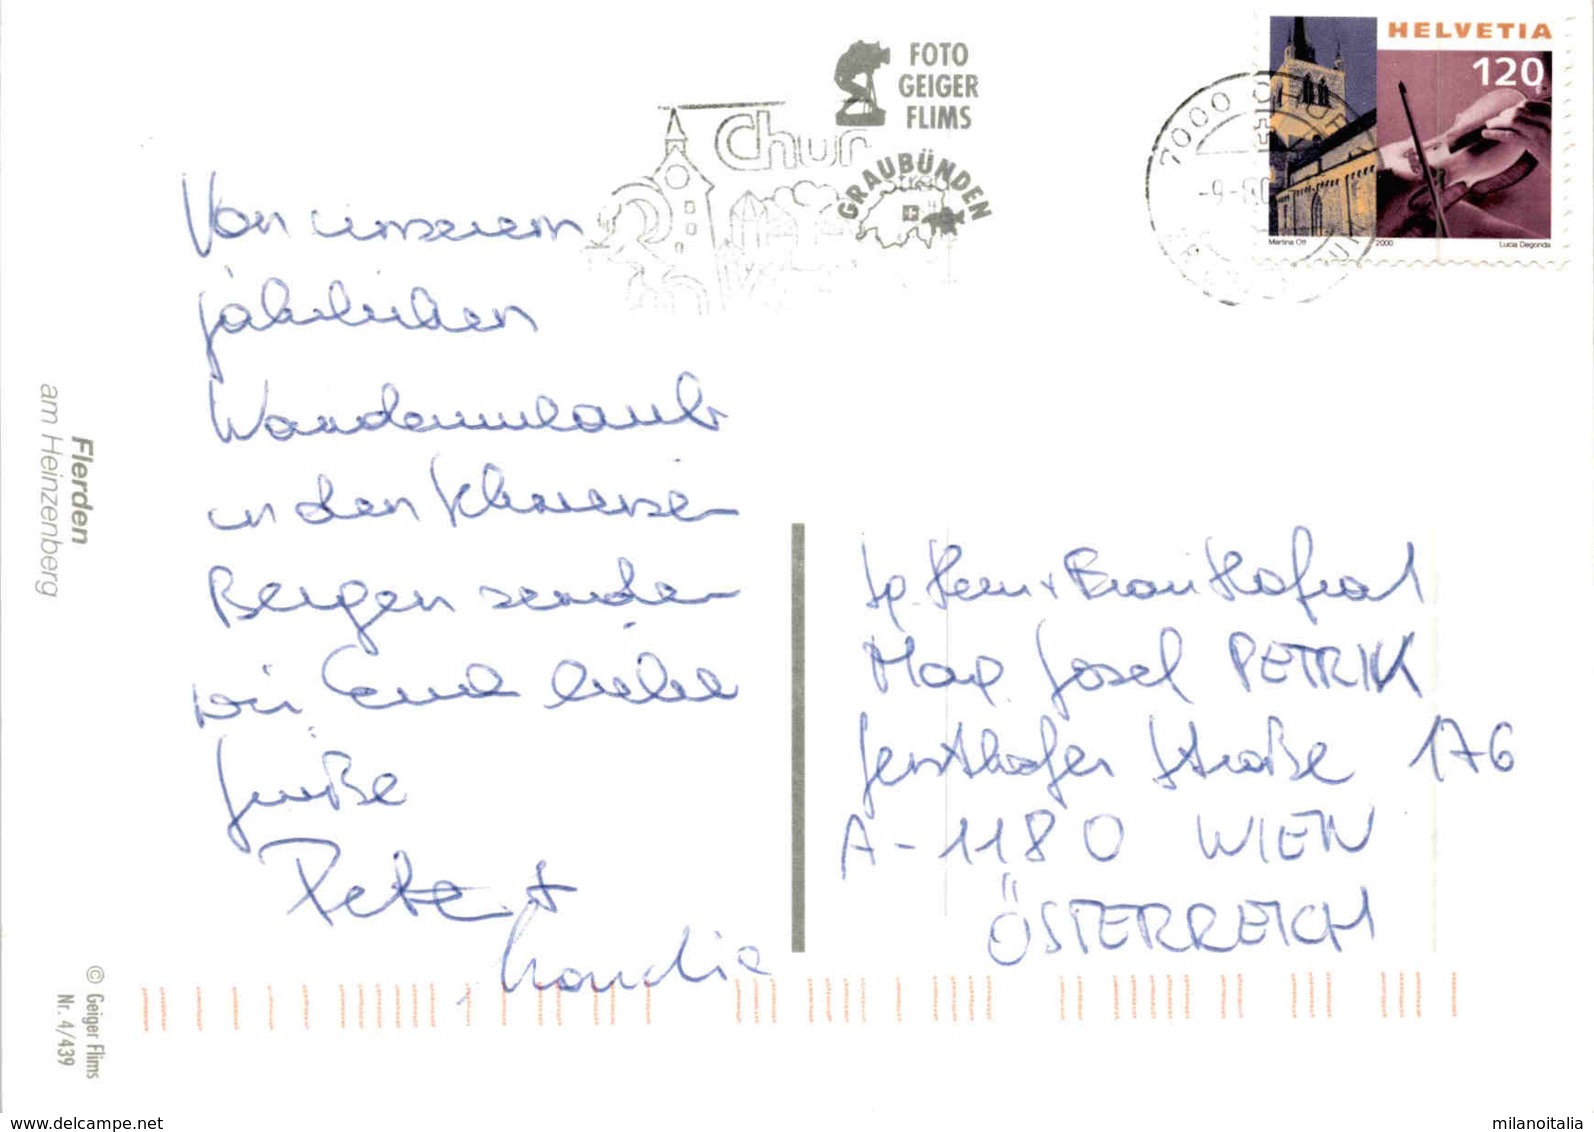 Von unserem
jährlichen
Wanderurlaub
in den Schweizer
Bergen senden
wir Euch liebe
Grüße
Peter +
Claudia
Flerden
am Heinzenberg
© Geiger Flims
Nr. 4/439
FOTO
GEIGER
FLIMS
GRAUBÜNDEN
Chur
7000 CHUR 1
HELVETIA
120
Martina Ott 2000 Lucia Degonda
Herrn + Frau Hofrat
Josef PETRIK
Gersthofer Straße 176
A-1180 WIEN
ÖSTERREICH
www.delcampe.net
milanoitalia